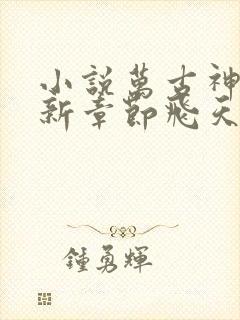 小說萬古神
新章節飛天
鍾勇輝